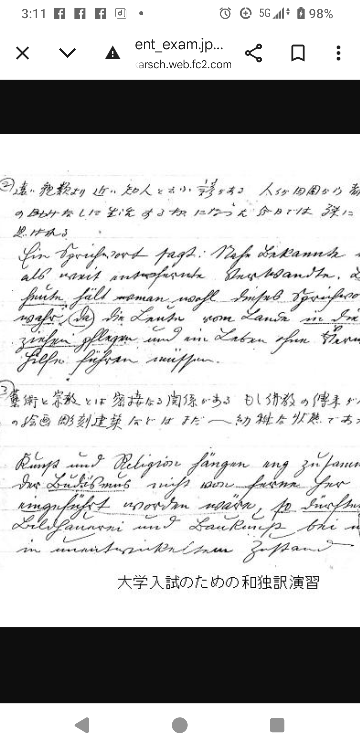 3:11
5G
98%
ent_exam.jp...
karsch.web.fc2.com
② 遠い親類より近い知人 という諺がある 人々が田園から都
の助みなしに生活する
思はれる
Ein Sprichwort sagt: Nahe Bekannte
als weit entfernte Verwandte.
heute hält man wohl dieses Sprichwo
wahr, da die Leute vom Lande in die
ziehen pflegen und ein Leben ohne
Hilfe führen müssen.
藝術と宗教とは密接なる関係がある もし佛教の傳来が
の絵画 彫刻建築などはまだ 幼稚な状態であ
Kunst und Religion hängen eng zusamm
der Buddismus nicht von ferne her
eingeführt worden wäre, so dürften
Bildhauerei und Baukunst bei u
in unentwickeltem Zustand
大学入試のための和独訳演習